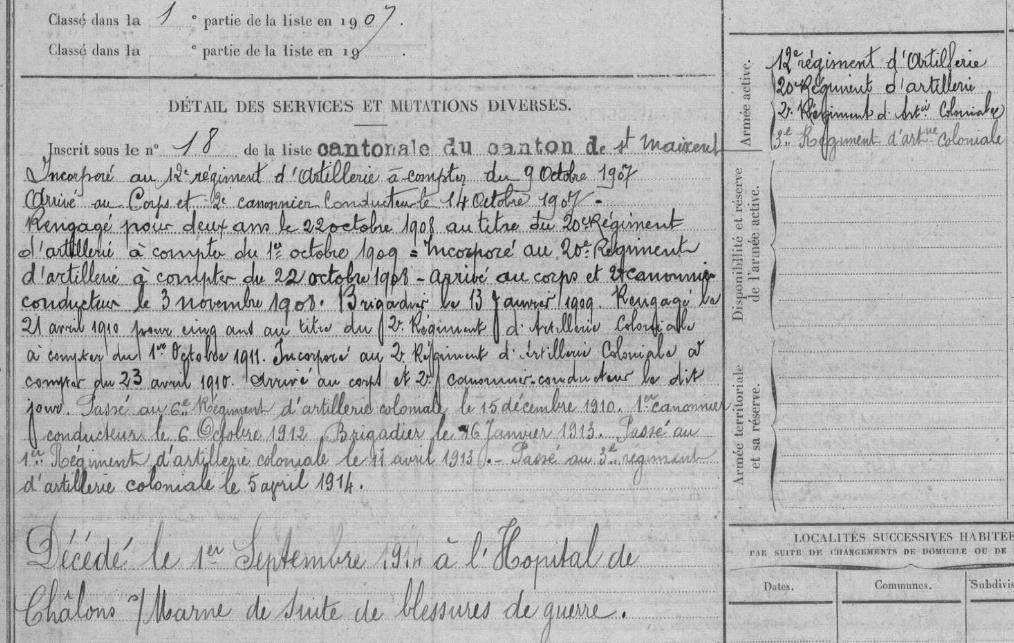 Classé dans la 1e partie de la liste en 1907.
Classé dans la e partie de la liste en 19 .
DÉTAIL DES SERVICES ET MUTATIONS DIVERSES.
Inscrit sous le no 18 de la liste cantonale du canton de St Maixent
Incorporé au 12e régiment d'Artillerie à compter du 9 Octobre 1907
Arrivé au Corps et 2e canonnier Conducteur le 14 Octobre 1907 -
Rengagé pour deux ans le 22 octobre 1908 au titre du 20e Régiment
d'artillerie à compter du 1er octobre 1909 = Incorporé au 20e Régiment
d'artillerie à compter du 22 octobre 1908 - arrivé au corps et 2e canonnier
conducteur le 3 novembre 1908. Brigadier le 13 Janvier 1909. Rengagé le
21 avril 1910 pour cinq ans au titre du 2e Régiment d'Artillerie Coloniale
à compter du 1er Octobre 1911. Incorporé au 2e Régiment d'Artillerie Coloniale à
compter du 23 avril 1910. Arrivé au corps et 2e canonnier-conducteur le dit
jour. Passé au 6e Régiment d'artillerie coloniale le 15 décembre 1910. 1er canonnier
conducteur le 6 Octobre 1912 Brigadier le 16 Janvier 1913. Passé au
1er Régiment d'artillerie coloniale le 11 avril 1913. - Passé au 3e régiment
d'artillerie coloniale le 5 avril 1914.
Décédé le 1er Septembre 1914 à l'Hopital de
Châlons s/Marne de suite de blessures de guerre.
Armée active.
12e régiment d'Artillerie
20e Régiment d'artillerie
2e Régiment d'Artie Coloniale
3e Régiment d'artrie coloniale
Disponibilité et réserve
de l'armée active.
Armée territoriale
et sa réserve.
LOCALITÉS SUCCESSIVES HABITÉ
PAR SUITE DE CHANGEMENTS DE DOMICILE OU DE
Dates.
Communes.
Subdivis